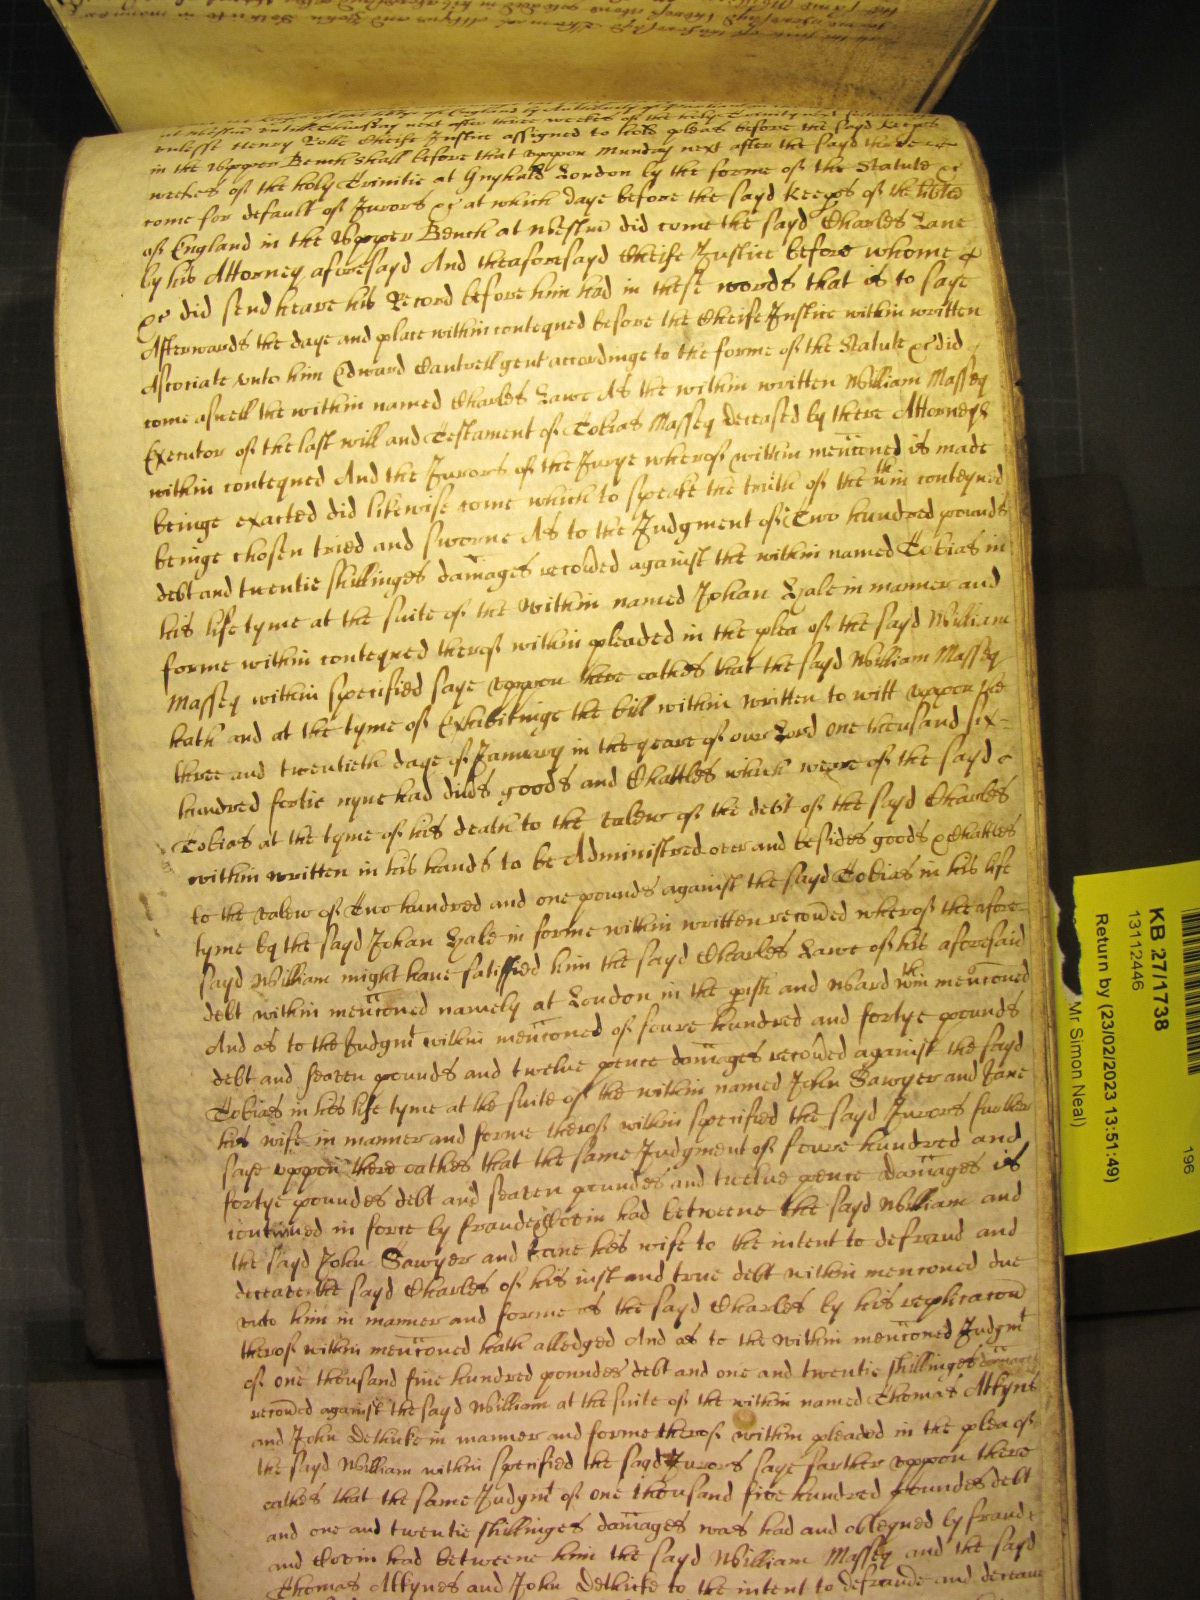 at Westm untill Thursday next after three weekes of the holy Trinity next
unlesse Henry Rolle Cheife Justice assigned to hold pleas before the sayd Keeps
in the Vpper Bench shall before that vppon Munday next after the sayd three
weekes of the holy Trinitie at Guyhald London by the forme of the Statute &c
come for default of Jurors &c at which daye before the sayd Keeps of the libtie
of England in the Vpper Bench at Westm did come the sayd Charles Lane
by his Attorney aforesayd And theaforesayd Cheife Justice before whome &
&c did send heare his Record before him had in these words that is to saye
Afterwards the daye and place within conteyned before the Cheife Justice within written
Associate vnto him Edward Cantrell gent accordinge to the forme of the Statute &c did
come aswell the within named Charles Lawe As the within written William Massey
Executor of the last will and Testament of Tobias Massey deceased by there Attorneys
within conteyned And the Jurors of the Jurye wherof within menconed is made
beinge exacted did likewise come which to speake the truth of the wthin conteyned
beinge chosen tried and sworne As to the Judgment of Two hundred pounds
debt and twentie shillinges damages recoued against the within named Tobias in
his life tyme at the suite of the within named Johan Hale in manner and
forme within conteyned therof within pleaded in the plea of the sayd William
Massey within specified saye vppon there oathes that the sayd William Massey
hath and at the tyme of Exhibitinge the bill within written to witt vppon the
three and twentieth daye of January in the yeare of our Lord one thousand six-
hundred fortie nyne had diu's goods and Chattles which were of the sayd &
Tobias at the tyme of his death to the valew of the debt of the sayd Charles
within written in his hands to be Administred over and besides goods & Chattles
to the valew of Two hundred and one pounds against the sayd Tobias in his life
tyme by the sayd Johan Hale in forme within written recoued wherof the afore-
sayd William might have satisfied him the sayd Charles Lawe of his aforesaid
debt within menconed namely at London in the pish and Ward wthin menconed
And as to the Judgmt within menconed of foure hundred and fortye pounds
debt and seaven pounds and twelve pence damages recoued against the sayd
Tobias in his life tyme at the suite of the within named John Sawyer and Jane
his wife in manner and forme therof within specified the sayd Jurors further
saye vppon there oathes that the same Judgment of foure hundred and
fortye poundes debt and seaven poundes and twelve pence damages is
continued in force by fraude & Covin had betweene the sayd William and
the sayd John Sawyer and Jane his wife to the intent to defraud and
deceave the sayd Charles of his iust and true debt within menconed due
vnto him in manner and forme as the sayd Charles by his replicacon
therof within menconed hath alledged And as to the within menconed Judgmt
of one thousand five hundred poundes debt and one and twentie shillinges damages
recoued against the sayd William at the suite of the within named Thomas Atkyns
and John Dethicke in manner and forme therof within pleaded in the plea of
the sayd William within specified the sayd Jurors saye farther vppon there
oathes that the same Judgmt of one thousand five hundred poundes debt
and one and twentie shillinges damages was had and obteyned by fraude
and Covin had betweene him the sayd William Massey and the sayd
Thomas Atkynes and John Dethicke to the intent to defraude and deceave
KB 27/1738
13112446
Return by (23/02/2023 13:51:49)
Mr Simon Neal)
196